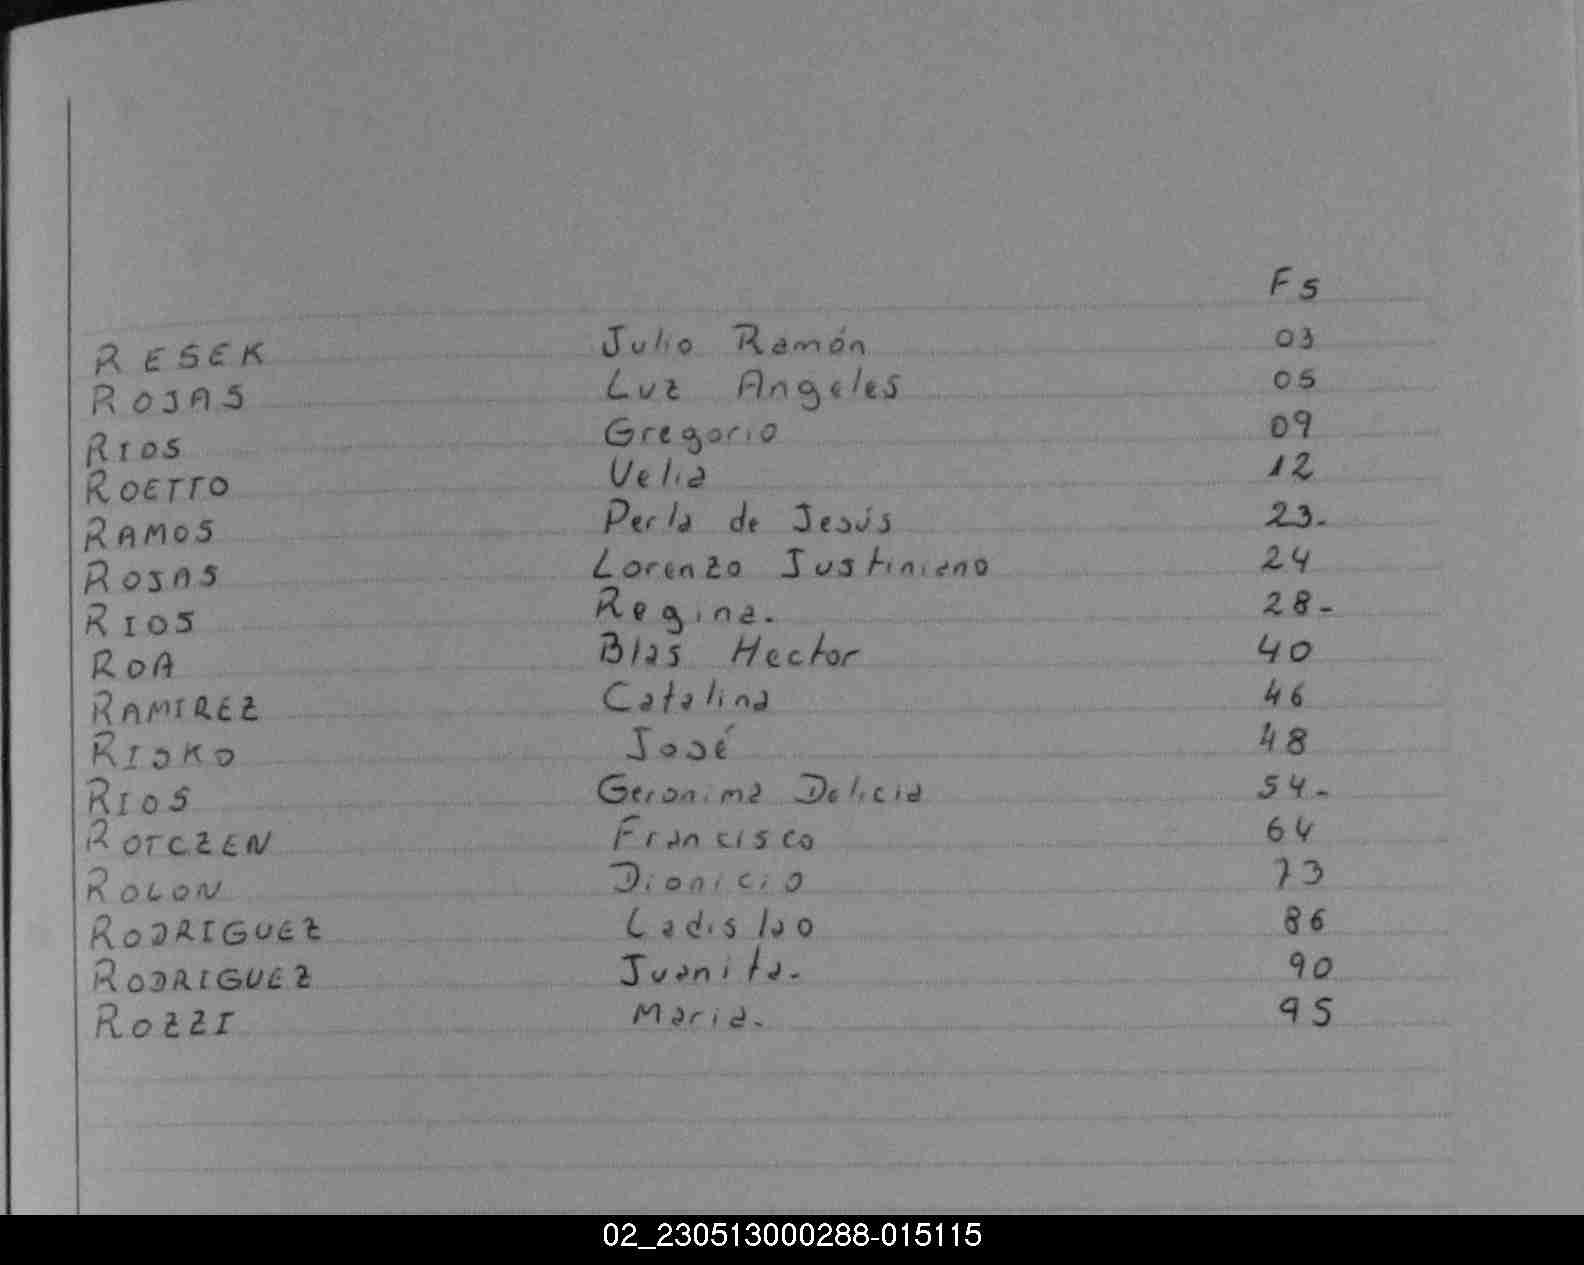 Fs
RESEK Julio Ramón 03
ROJAS Luz Angeles 05
RIOS Gregorio 09
ROETTO Velia 12
RAMOS Perla de Jesús 23.
ROJAS Lorenzo Justiniano 24
RIOS Regina. 28-
ROA Blas Hector 40
RAMIREZ Catalina 46
RISKO José 48
RIOS Geronima Delicia 54-
ROTCZEN Francisco 64
ROLON Dionicio 73
RODRIGUEZ Ladislao 86
RODRIGUEZ Juanita. 90
ROZZI Maria. 95
02_230513000288-015115